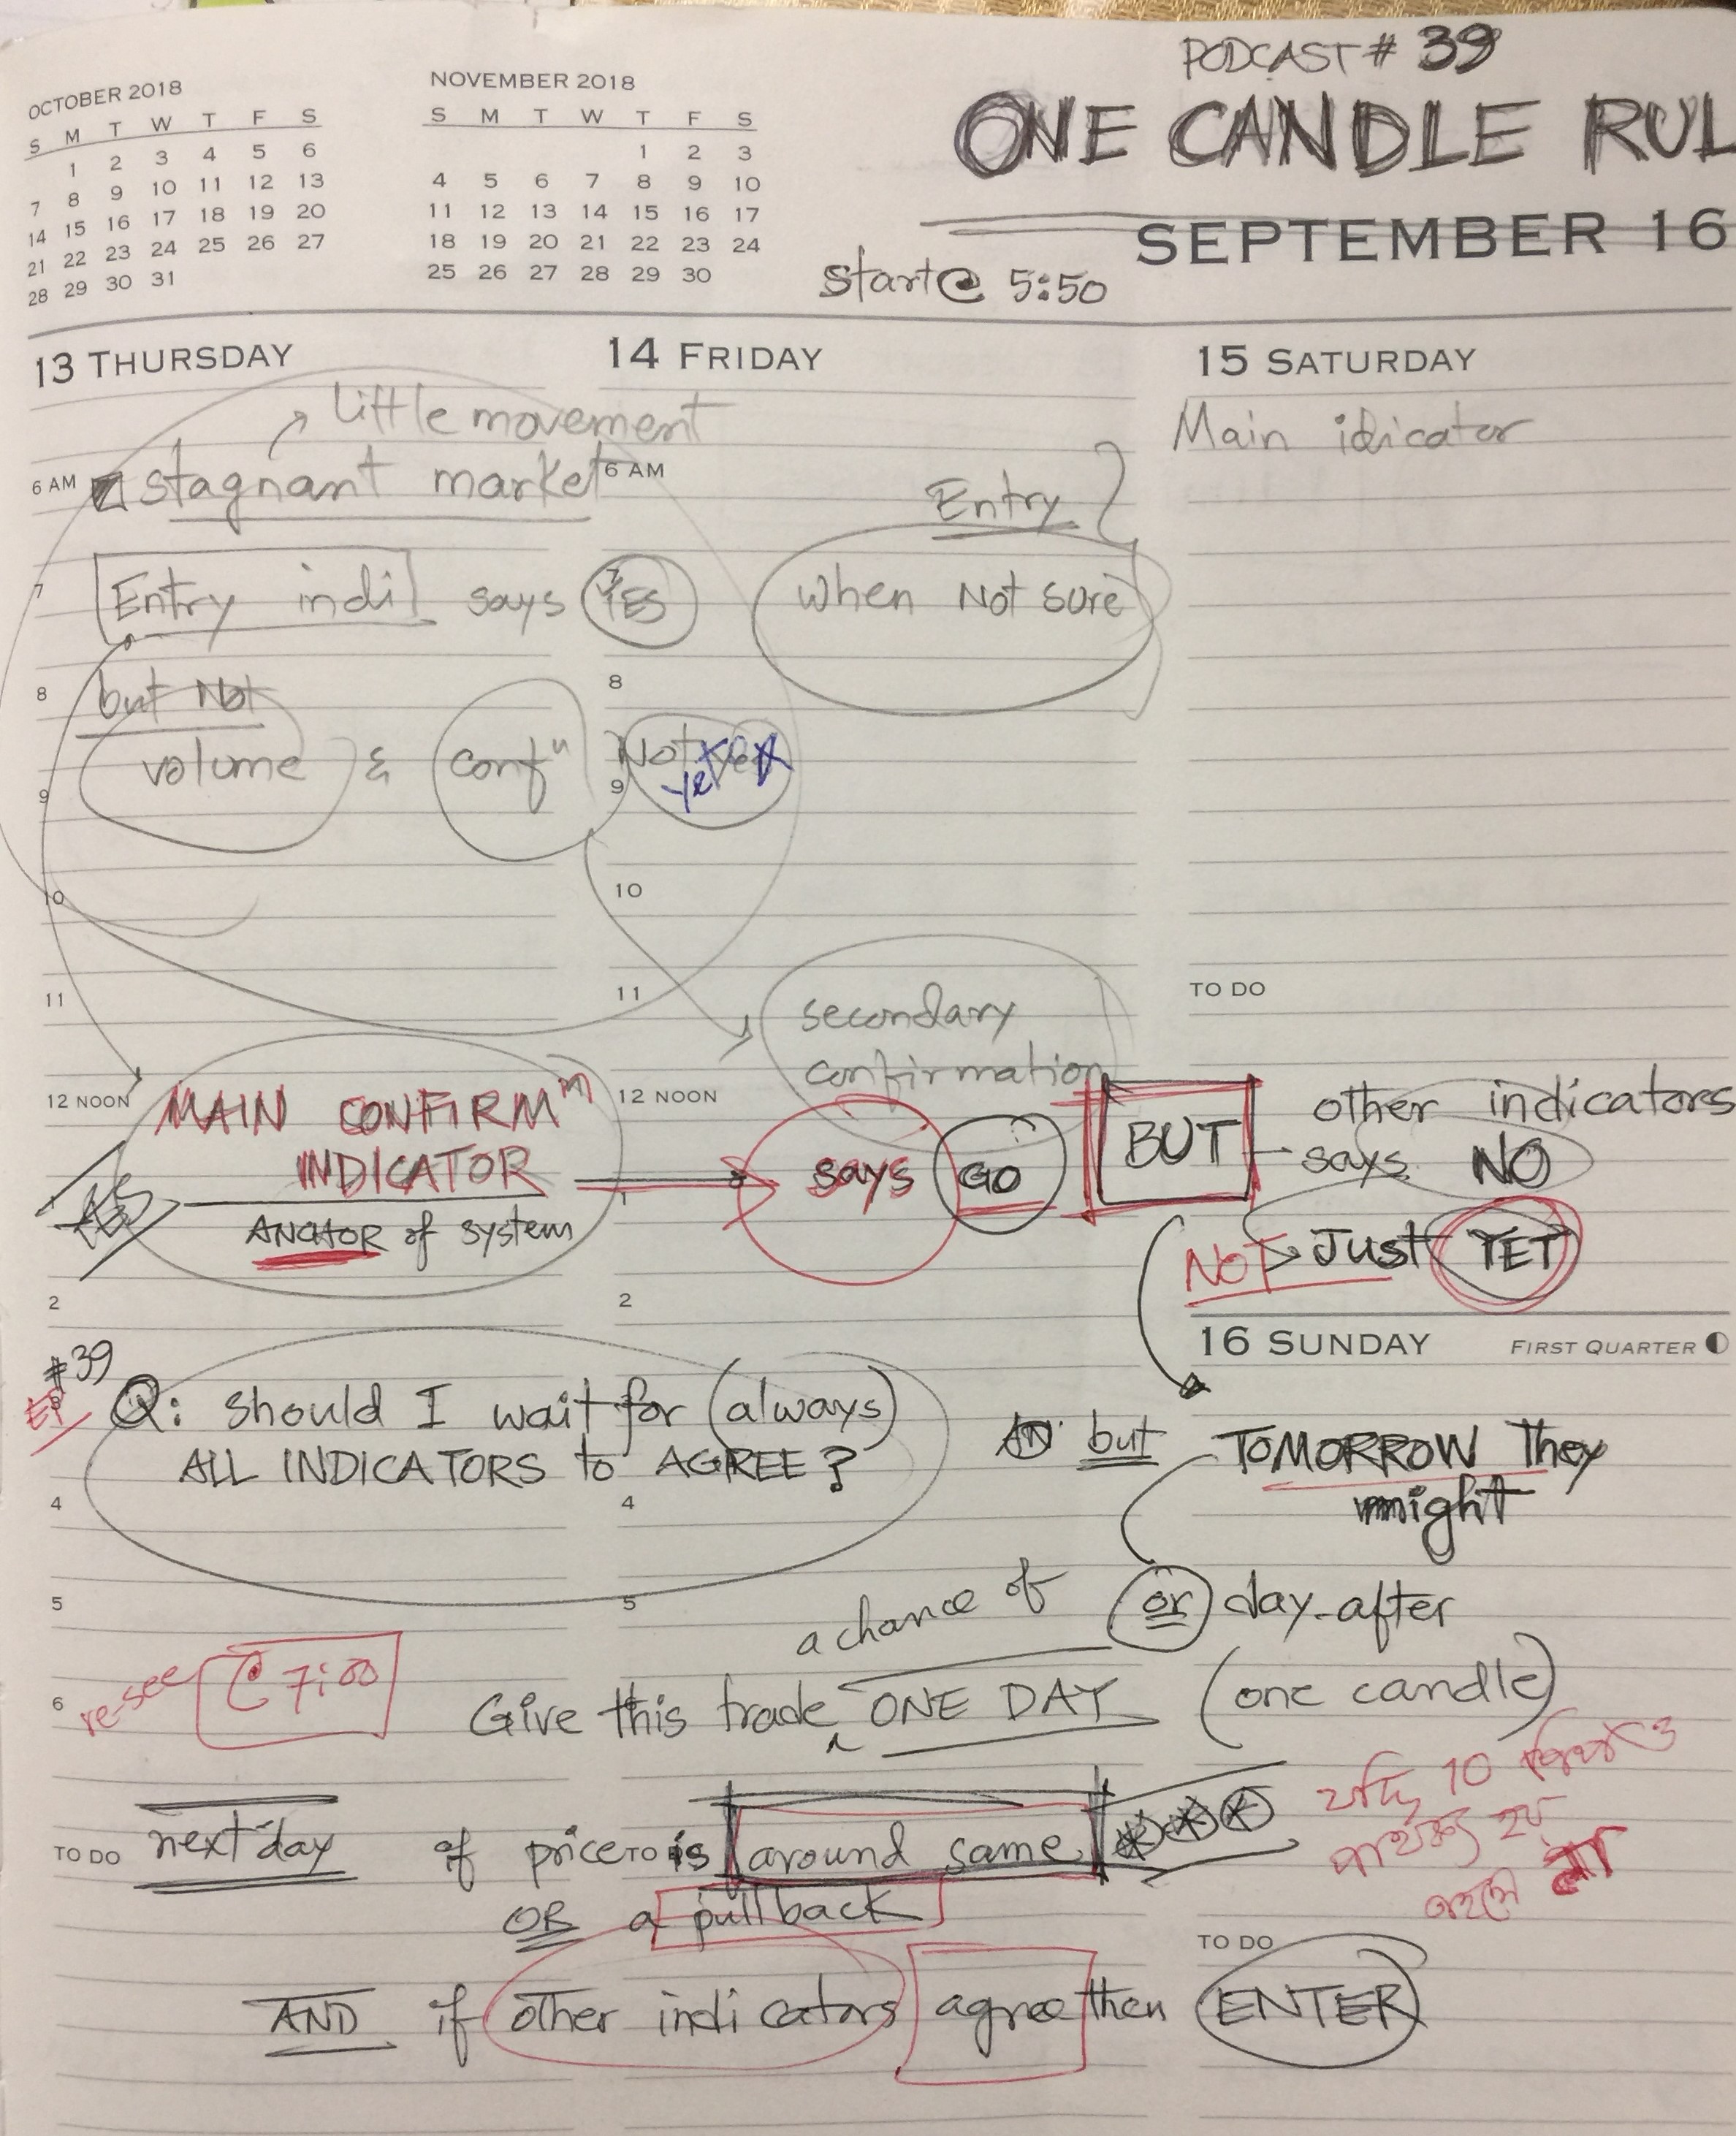 PODCAST # 39
ONE CANDLE RUL
OCTOBER 2018
S M T W T F S
1 2 3 4 5 6
7 8 9 10 11 12 13
14 15 16 17 18 19 20
21 22 23 24 25 26 27
28 29 30 31
NOVEMBER 2018
S M T W T F S
1 2 3
4 5 6 7 8 9 10
11 12 13 14 15 16 17
18 19 20 21 22 23 24
25 26 27 28 29 30
SEPTEMBER 16
Start@ 5:50
13 THURSDAY
14 FRIDAY
15 SATURDAY
little movement
Main idicator
6 AM stagnant market 6 AM
Entry
7 Entry indi says YES
when Not sure
8 but Not 8
volume & confn Not yet
9 9
10 10
11 11
TO DO
secondary
confirmation
12 NOON MAIN CONFIRMn 12 NOON
INDICATOR says GO BUT other indicators
says NO
ANCHOR of system
1
NOT Just YET
2 2
16 SUNDAY FIRST QUARTER
#39
EP Q: should I wait for (always)
ALL INDICATORS to AGREE?
but TOMORROW They
might
4 4
5 5
a chance of or day-after
re-see @ 7:00
6 Give this trade ONE DAY (one candle)
যদি 10
TO DO next day if price TO DO is around same ***
পার্থক্য হয়
OR a pullback
তাহলে না
TO DO
AND if other indicators agree then ENTER